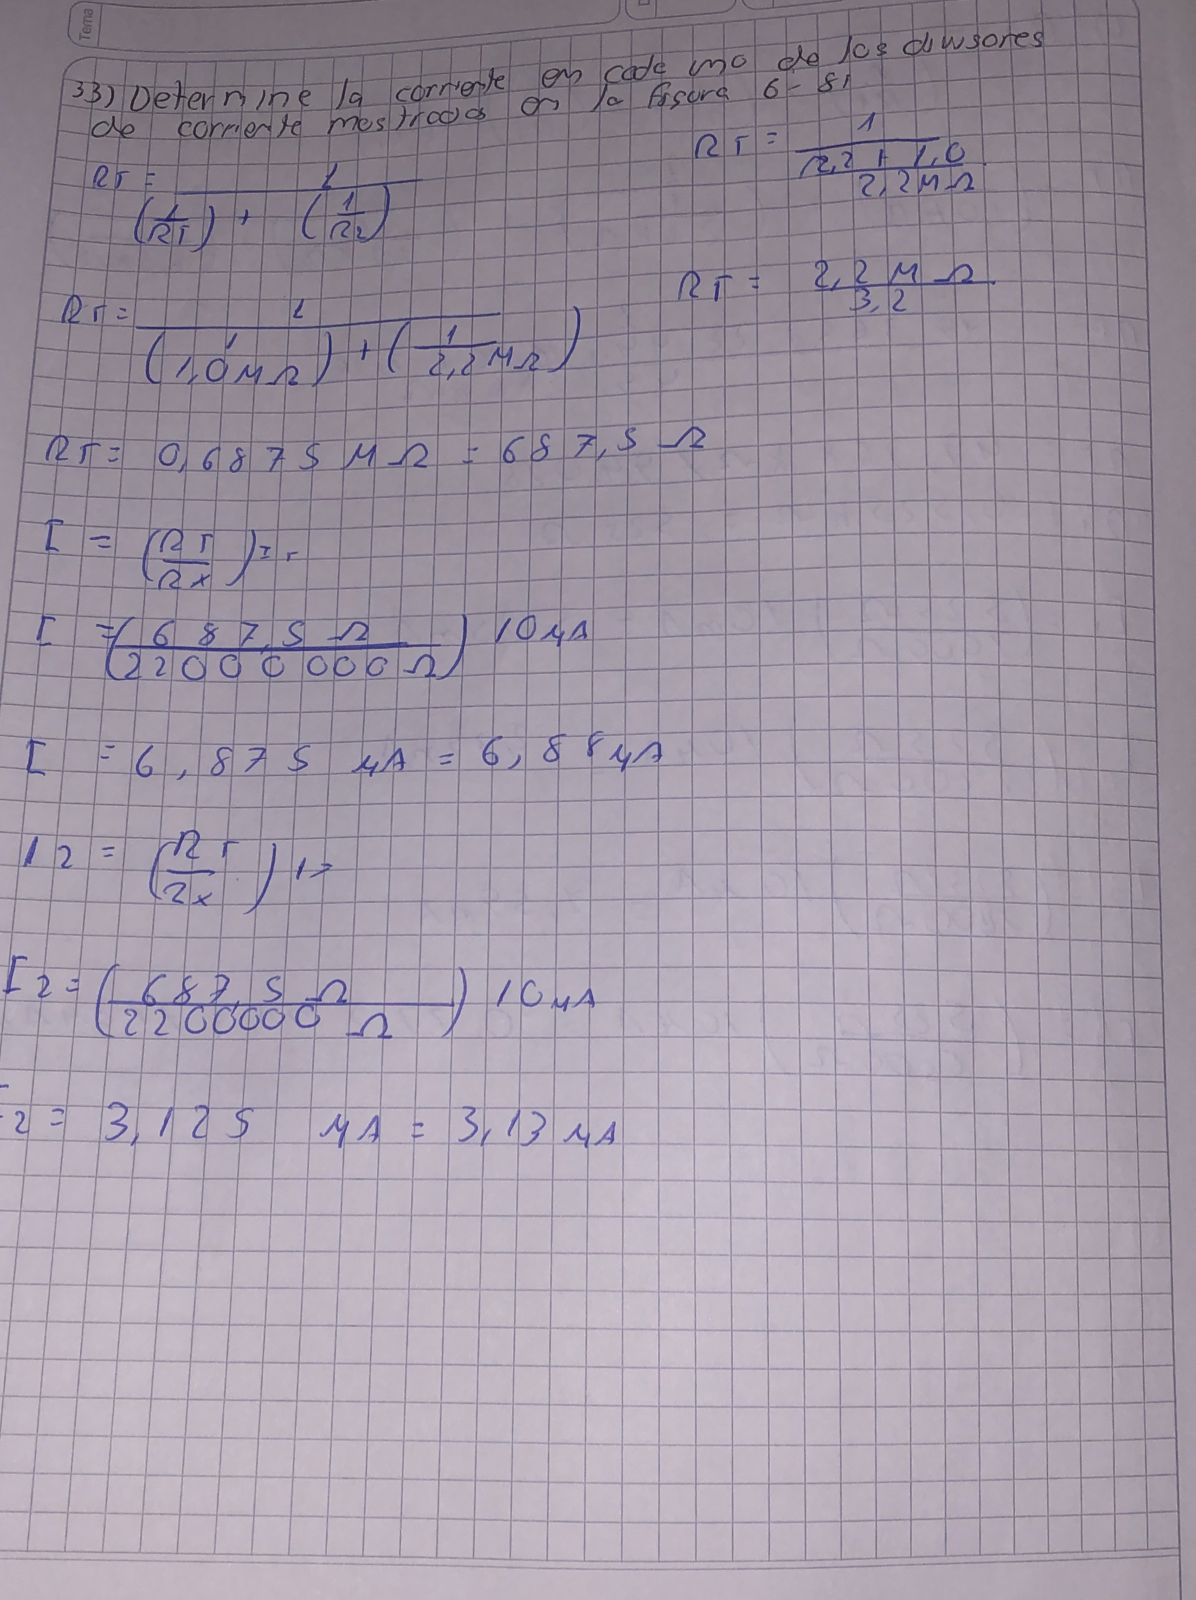 Tema
33) Determine la corriente en cada uno de los divisores
de corriente mostrados en la figura 6-81
RT = 1 / ((1/R1) + (1/R2))
RT = 1 / ((1/1,0MΩ) + (1/2,2MΩ))
RT = 1 / ((2,2 + 1,0)/2,2MΩ)
RT = 2,2 MΩ / 3,2
RT = 0,6875 MΩ = 687,5 Ω
I = (RT/Rx) IT
I = (687,5 Ω / 220000000 Ω) 10 μA
I = 6,875 μA = 6,88 μA
I2 = (RT/Rx) IT
I2 = (687,5 Ω / 2200000 Ω) 10 μA
I2 = 3,125 μA = 3,13 μA